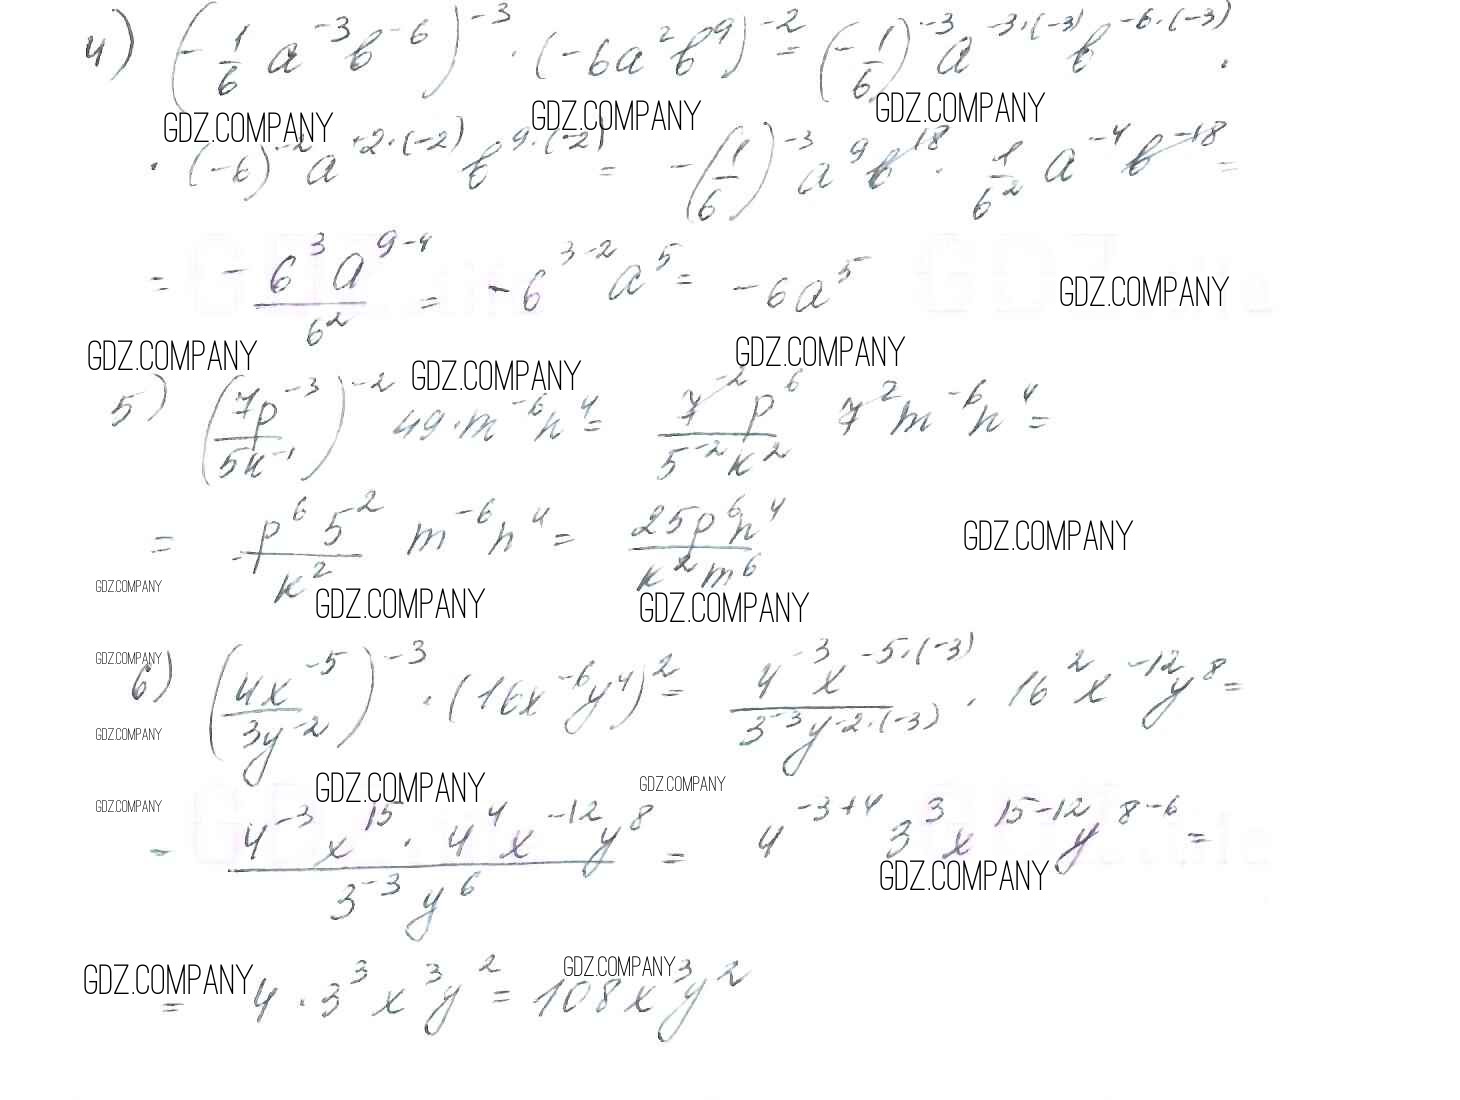 4) (-1/6 a^-3 b^-6)^-3 · (-6a^2 b^9)^-2 = (-1/6)^-3 a^-3·(-3) b^-6·(-3) ·
GDZ.COMPANY GDZ.COMPANY GDZ.COMPANY
· (-6)^-2 a^2·(-2) b^9·(-2) = -(1/6)^-3 a^9 b^18 · 1/6^2 a^-4 b^-18 =
= -6^3 a^9-4 / 6^2 = -6^3-2 a^5 = -6a^5 GDZ.COMPANY
GDZ.COMPANY GDZ.COMPANY GDZ.COMPANY
5) (7p^-3 / 5k^-1)^-2 49·m^-6 n^4 = 7^-2 p^6 / 5^-2 k^2 7^2 m^-6 n^4 =
= p^6 5^2 / k^2 m^-6 n^4 = 25p^6 n^4 / k^2 m^6 GDZ.COMPANY
GDZ.COMPANY GDZ.COMPANY GDZ.COMPANY
GDZ.COMPANY
6) (4x^-5 / 3y^-2)^-3 · (16x^-6 y^4)^2 = 4^-3 x^-5·(-3) / 3^-3 y^-2·(-3) · 16^2 x^-12 y^8 =
GDZ.COMPANY
GDZ.COMPANY GDZ.COMPANY
GDZ.COMPANY
= 4^-3 x^15 · 4^4 x^-12 y^8 / 3^-3 y^6 = 4^-3+4 3^3 x^15-12 y^8-6 =
GDZ.COMPANY
GDZ.COMPANY GDZ.COMPANY
= 4 · 3^3 x^3 y^2 = 108x^3 y^2